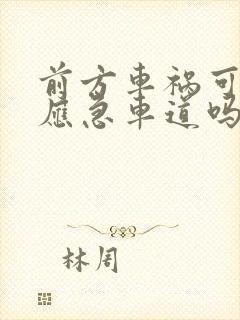 前方車祸可
應急車道吗
林周